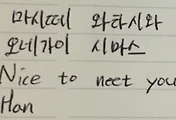 마시떼 와타시와
오네가이 시마스
Nice to neet you
Han